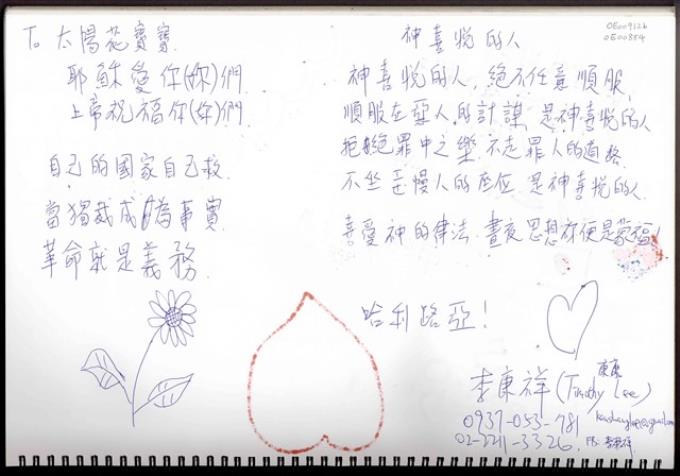 To 太陽花寶寶
耶穌愛你(妳)們
上帝祝福你(妳)們
自己的國家自己救
當獨裁成為事實
革命就是義務
OE00912b
OE00854
神喜悅的人
神喜悅的人,絕不任意順服,
順服在惡人的計謀,是神喜悅的人
拒絕罪中之樂,不走罪人的道路
不坐 慢人的座位,是神喜悅的人.
喜愛神的律法,晝夜思想 便是蒙福!
哈利路亞!
李康祥 (Timothy Lee)
康康
0937-053-781
02-2721-3326
FB: